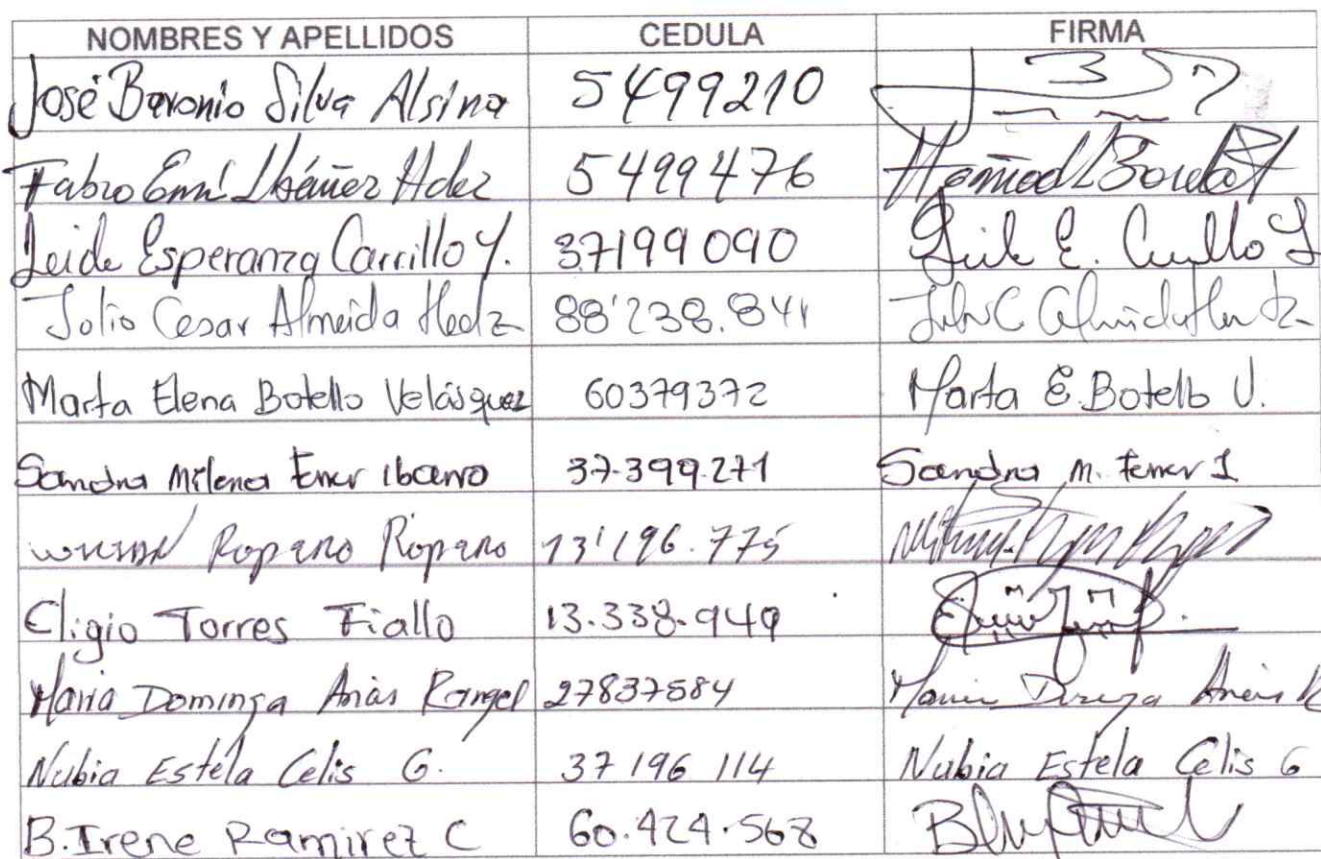 NOMBRES Y APELLIDOS CEDULA FIRMA
José Baronio Silva Alsina 5499210
Fabio Ibáñez Hdez 5499476
Leide Esperanza Carrillo Y. 37199090 E.
Julio Cesar Almeida Hedz 88'238.841
Marta Elena Botello Velásquez 60379372 Marta E. Botello V.
Sandra Milena Ferrer Ibarro 37.399.271 Sandra M. Ferrer I
Ropero Ropero 13'196.775
Eligio Torres Fiallo 13.338.949
Maria Dominga Arias Rangel 27837584 Maria Arias R
Nubia Estela Celis G. 37 196 114 Nubia Estela Celis G
B. Irene Ramirez C 60.424.568